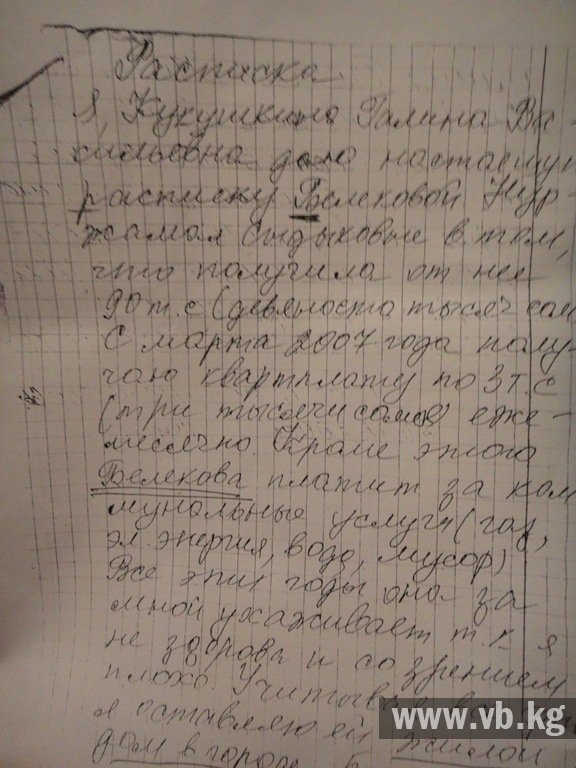 Расписка
Я, Кукушкина Галина Ва-
сильевна даю настоящую
расписку Белековой Нур-
жамал Сыдыковне в том,
что получила от нее
90 т.с (девяносто тысяч сом
С марта 2007 года полу-
чаю квартплату по 3 т. с
(три тысячи сомов) еже-
месячно. Кроме этого
Белекова платит за ком
мунальные услуги (газ,
эл. энергия, вода, мусор)
Все эти годы она за
мной ухаживает т.к я
не здорова и со зрением
плохо. Учитывая
я оставляю ей жилой
дом в городе
www.vb.kg